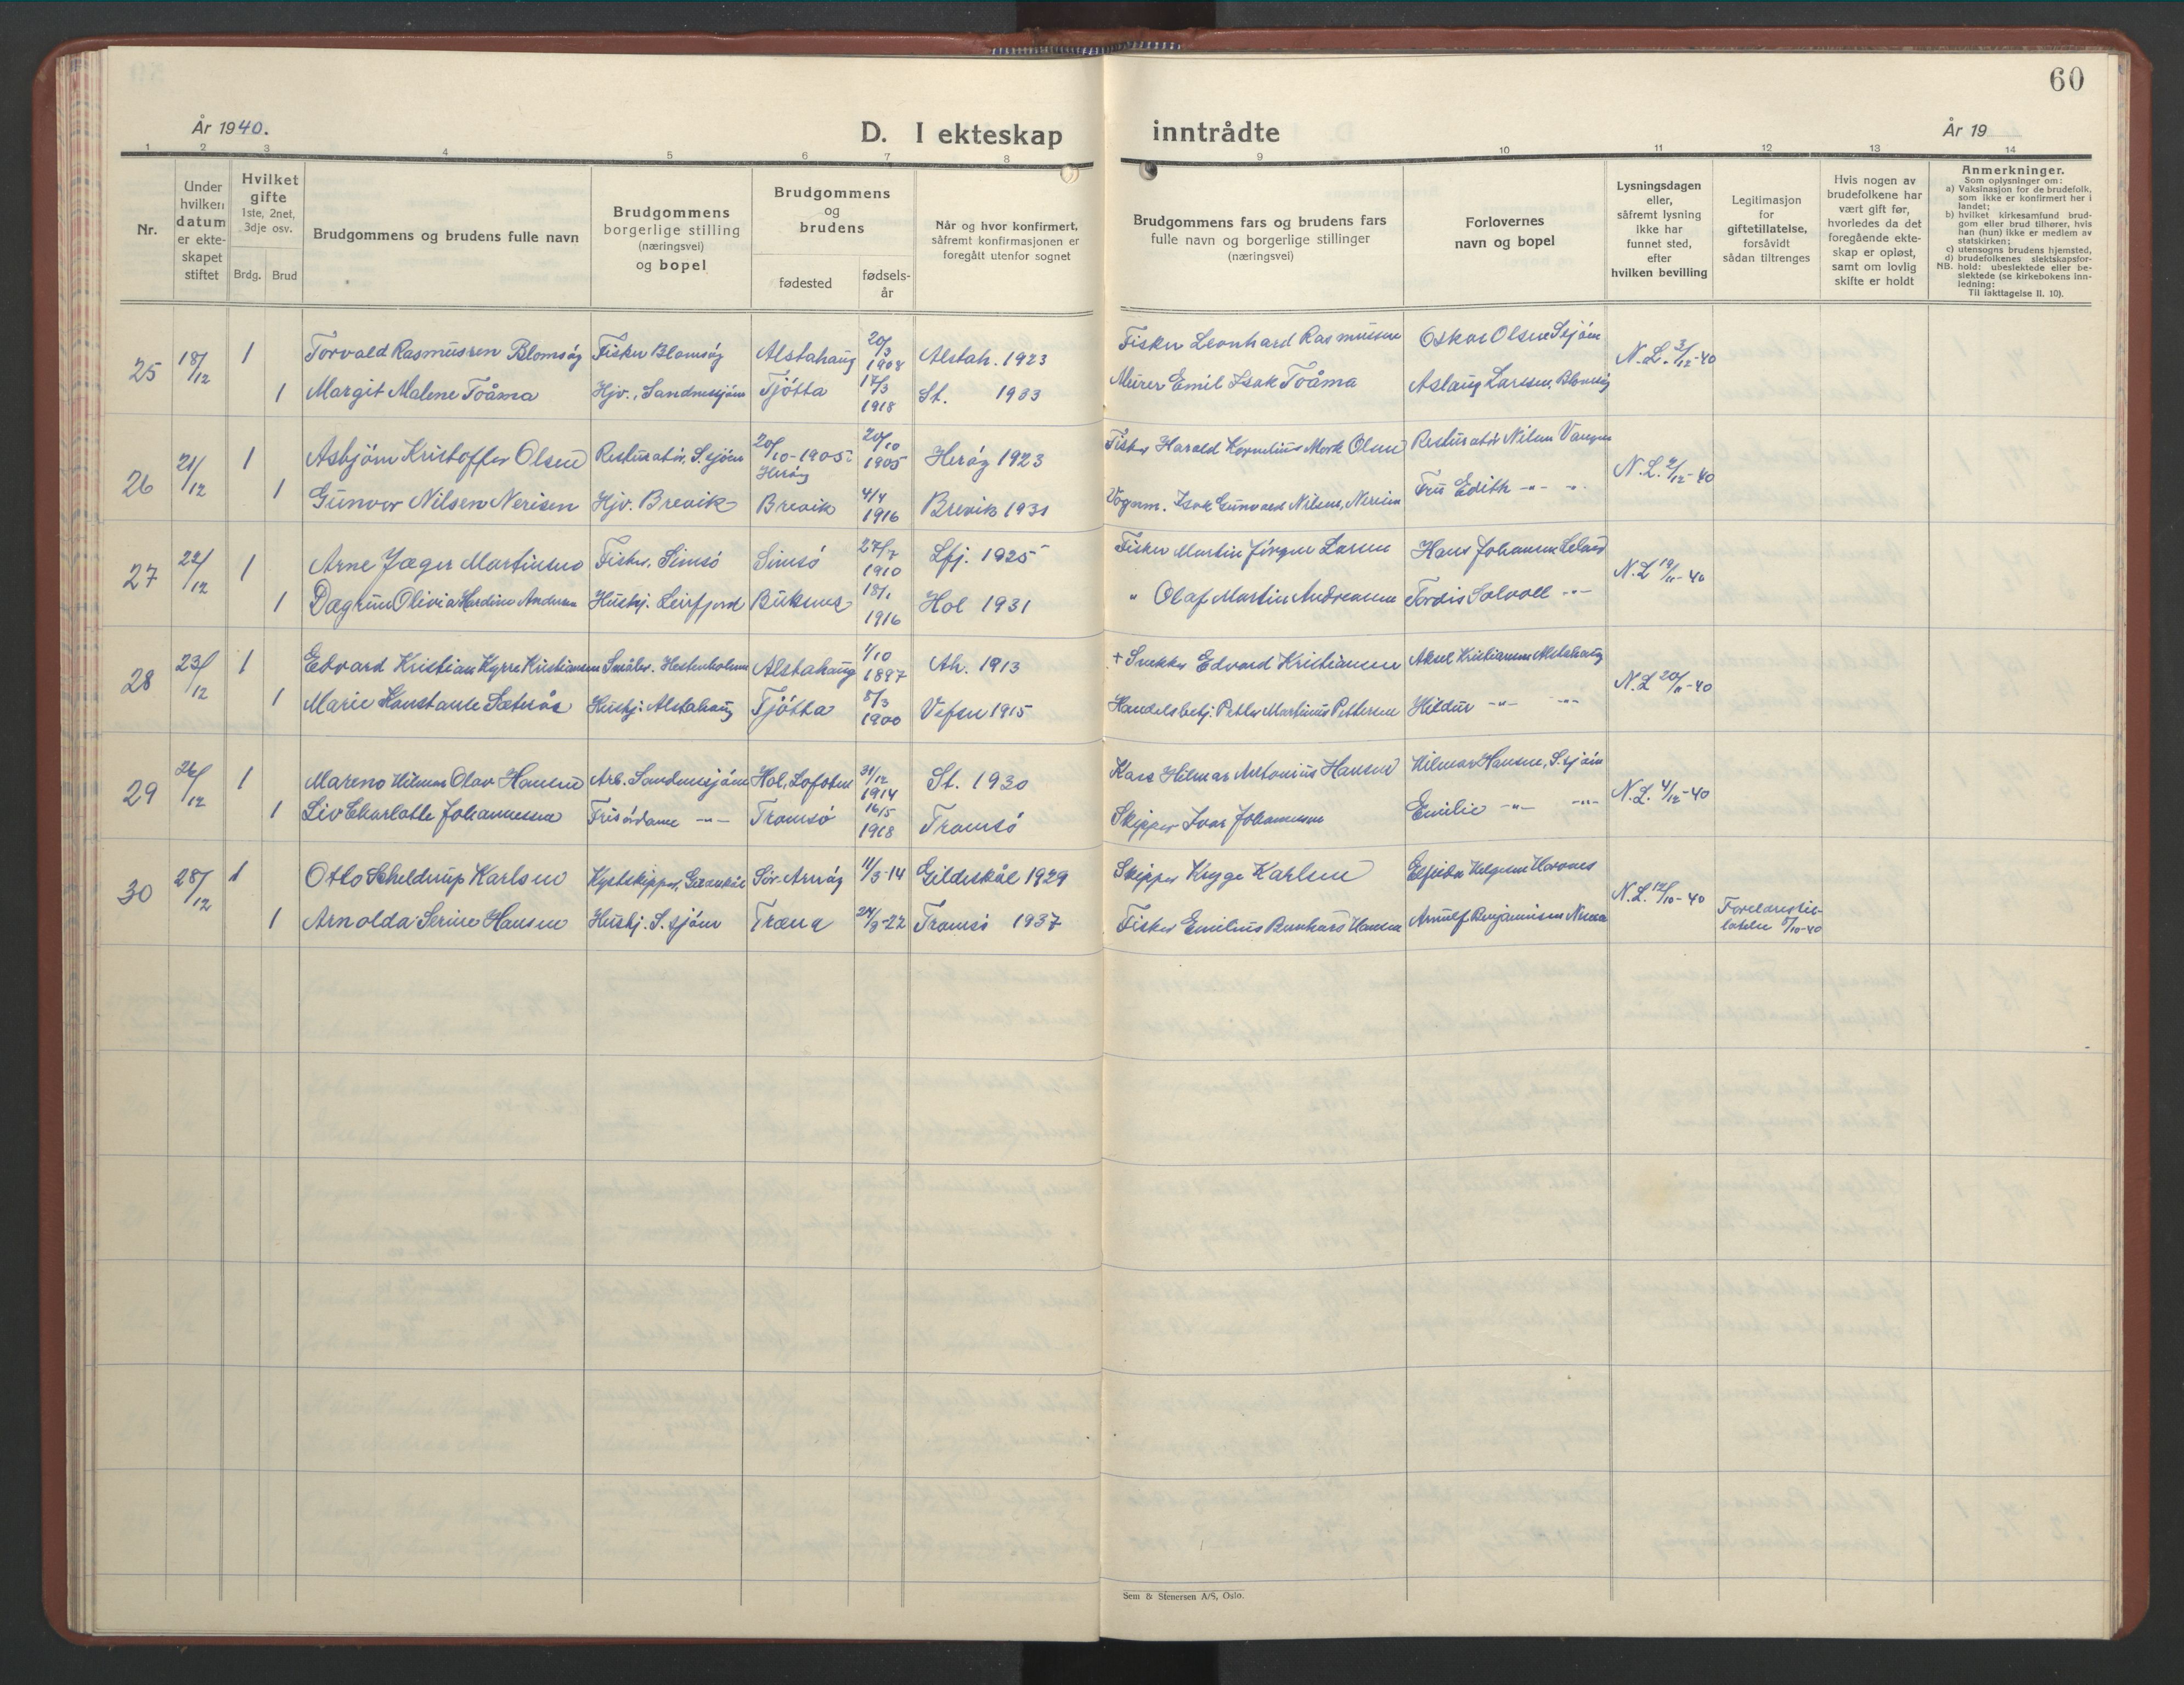 60
År 1940.
D. I ekteskap inntrådte
År 19
1 2 3 4 5 6 7 8 9 10 11 12 13 14
Nr.
Under
hvilken
datum
er ekte-
skapet
stiftet
Hvilket
gifte
1ste, 2net,
3dje osv.
Brdg. Brud
Brudgommens og brudens fulle navn
Brudgommens
borgerlige stilling
(næringsvei)
og bopel
Brudgommens
og
brudens
fødested
fødsels-
år
Når og hvor konfirmert,
såfremt konfirmasjonen er
foregått utenfor sognet
Brudgommens fars og brudens fars
fulle navn og borgerlige stillinger
(næringsvei)
Forlovernes
navn og bopel
Lysningsdagen
eller,
såfremt lysning
ikke har
funnet sted,
efter
hvilken bevilling
Legitimasjon
for
giftetillatelse,
forsåvidt
sådan tiltrenges
Hvis nogen av
brudefolkene har
vært gift før,
hvorledes da det
foregående ekte-
skap er opløst,
samt om lovlig
skifte er holdt
Anmerkninger.
Som oplysninger om:
a) Vaksinasjon for de brudefolk,
som ikke er konfirmert her i
landet;
b) hvilket kirkesamfund brud-
gom eller brud tilhører, hvis
han (hun) ikke er medlem av
statskirken;
c) utensogns brudens hjemsted,
d) brudefolkenes slektskapsfor-
NB. hold: ubeslektede eller be-
slektede (se kirkebokens inn-
ledning:
Til iakttagelse II. 10).
25 18/12 1 Torvald Rasmussen Blomsøy Fisker Blomsøy Alstahaug 20/3 1908 Alstah. 1923 Fisker Leonhard Rasmussen Oskar Olsen Ssjøen N.L. 3/12-40
1 Margit Malene Toåma Hjv., Sandnessjøen Tjøtta 17/3 1918 St. 1933 Murer Emil Isak Toåma Aslaug Larssen, Blomsøy
26 21/12 1 Asbjørn Kristoffer Olsen Resturatør, S.sjøen 20/10-1905 Herøy 20/10 1905 Herøy 1923 Fisker Harald Kornelius Mork Olsen Resturatør Nilsen N.L. 2/12-40
1 Gunvor Nilsen Nerisen Hjv. Brevik Brevik 4/4 1916 Brevik 1931 Vognm. Isak Gunvald Nilsen, Fru Edith -"- -"-
27 22/12 1 Arne Jæger Martinsen Fisker, Simsø Simsø 27/7 1910 Lfj. 1925 Fisker Martin Jørgen Larsen Hans Johansen Leland N.L. 19/11-40
1 Dagrun Olivia Hardine Andersen Hushj. Leirfjord Buksnes 18/1 1916 Hol 1931 " Olaf Martin Andreassen Tordis Solvoll -"-
28 23/12 1 Edvard Kristian Kyrre Kristiansen Småbr. Hestenholmen Alstahaug 1/10 1897 Ah. 1913 + Snekker Edvard Kristiansen Aksel Kristiansen Alstahaug N.L. 20/11-40
1 Marie Konstanse Sæterås Hushj. Alstahaug Tjøtta 5/3 1900 Vefsn 1915 Handelsbetj. Petter Martinus Pettersen Hildur -"- -"-
29 26/12 1 Mareno Hilmar Olav Hansen Arb. Sandnessjøen Hol, Lofoten 31/12 1914 St. 1930 Hilmar Antonius Hansen Hilmar Hansen, S.sjøen N.L. 4/12-40
1 Liv Charlotte Johannessen Frisørdame -"- Tromsø 16/5 1918 Tromsø Skipper Ivar Johannessen Emilie -"- -"-
30 28/12 1 Otto Scheldrup Karlsen Kystskipper, Sør-Arnøy 11/3-14 Gildeskål 1929 Skipper Krygge Karlsen Elfrida Helgesen N.L. 12/10-40
1 Arnolda Serine Hansen Hushj. S.sjøen Træna 24/3-22 Tromsø 1937 Fisker Emilius Bernhard Hansen Arnulf Benjaminsen Foreldrestil-
latelse 5/10-40
Sem & Stenersen A/S, Oslo.